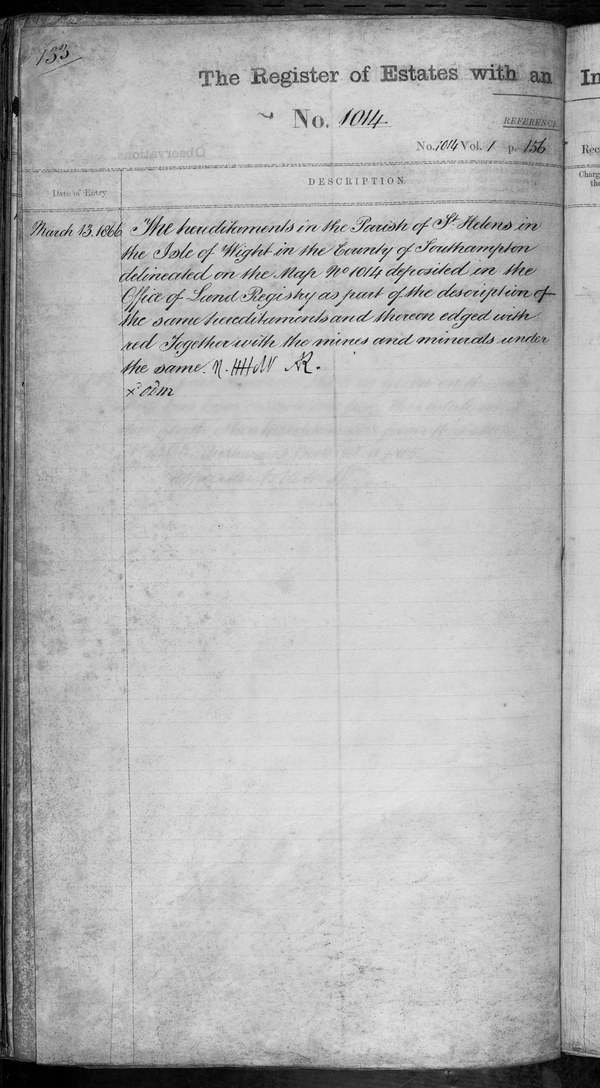 133
The Register of Estates with an
In
No. 1014
REFERENCE
No. 1014 Vol. 1 p. 156
Rec
Observations.
Charg
the
Date of Entry
DESCRIPTION.
March 13. 1866 The hereditaments in the Parish of St Helens in
the Isle of Wight in the County of Southampton
delineated on the Map No 1014 deposited in the
Office of Land Registry as part of the description of
the same hereditaments and thereon edged with
red Together with the mines and minerals under
the same.